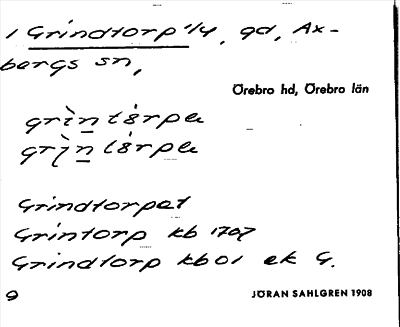 1 Grindtorp 1/4, gd, Ax-
bergs sn,
Örebro hd, Örebro län
Grindtorpet
Grintorp kb 1707
Grindtorp kb 01 ek G.
9
JÖRAN SAHLGREN 1908